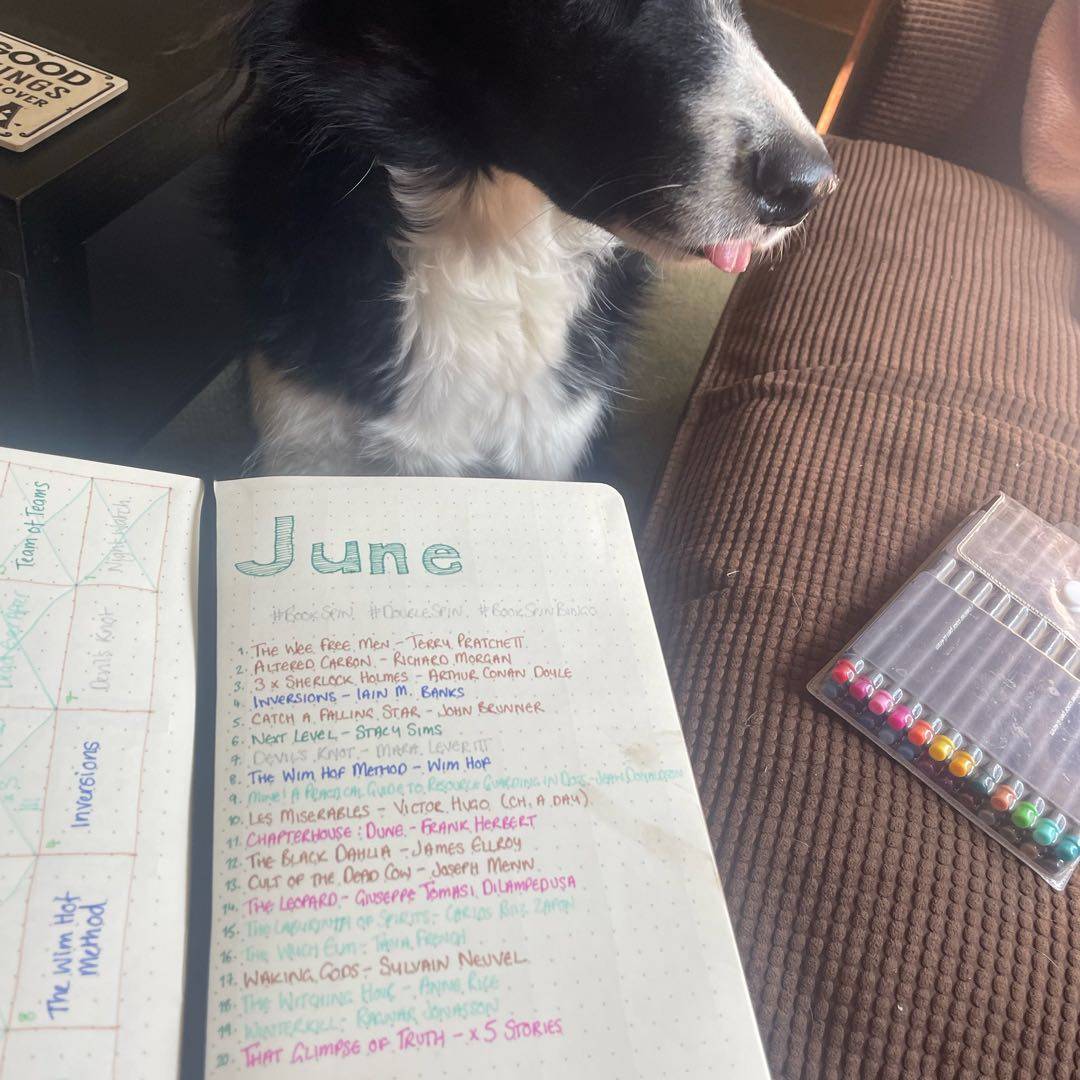 GOOD
OVER
A
Team of Teams
Night Watch
Devil's Knot
7
Inversions
4
The Wim Hof
Method
8
x3
June
#BookSpin #DoubleSpin #BookSpinBingo
1. The Wee Free Men – Terry Pratchett
2. Altered Carbon – Richard Morgan
3. 3 x Sherlock Holmes – Arthur Conan Doyle
4. Inversions – Iain M. Banks
5. Catch a Falling Star – John Brunner
6. Next Level – Stacy Sims
7. Devil's Knot – Mara Leveritt
8. The Wim Hof Method – Wim Hof
9. Mine! A Practical Guide to Resource Guarding in Dogs – Jean Donaldson
10. Les Miserables – Victor Hugo (ch. a day)
11. Chapterhouse: Dune – Frank Herbert
12. The Black Dahlia – James Ellroy
13. Cult of the Dead Cow – Joseph Menn
14. The Leopard – Giuseppe Tomasi DiLampedusa
15. The Labyrinth of Spirits – Carlos Ruiz Zafon
16. The Witch Elm – Tana French
17. Waking Gods – Sylvain Neuvel
18. The Witching Hour – Anne Rice
19. Winterkill – Ragnar Jonasson
20. That Glimpse of Truth – x 5 Stories